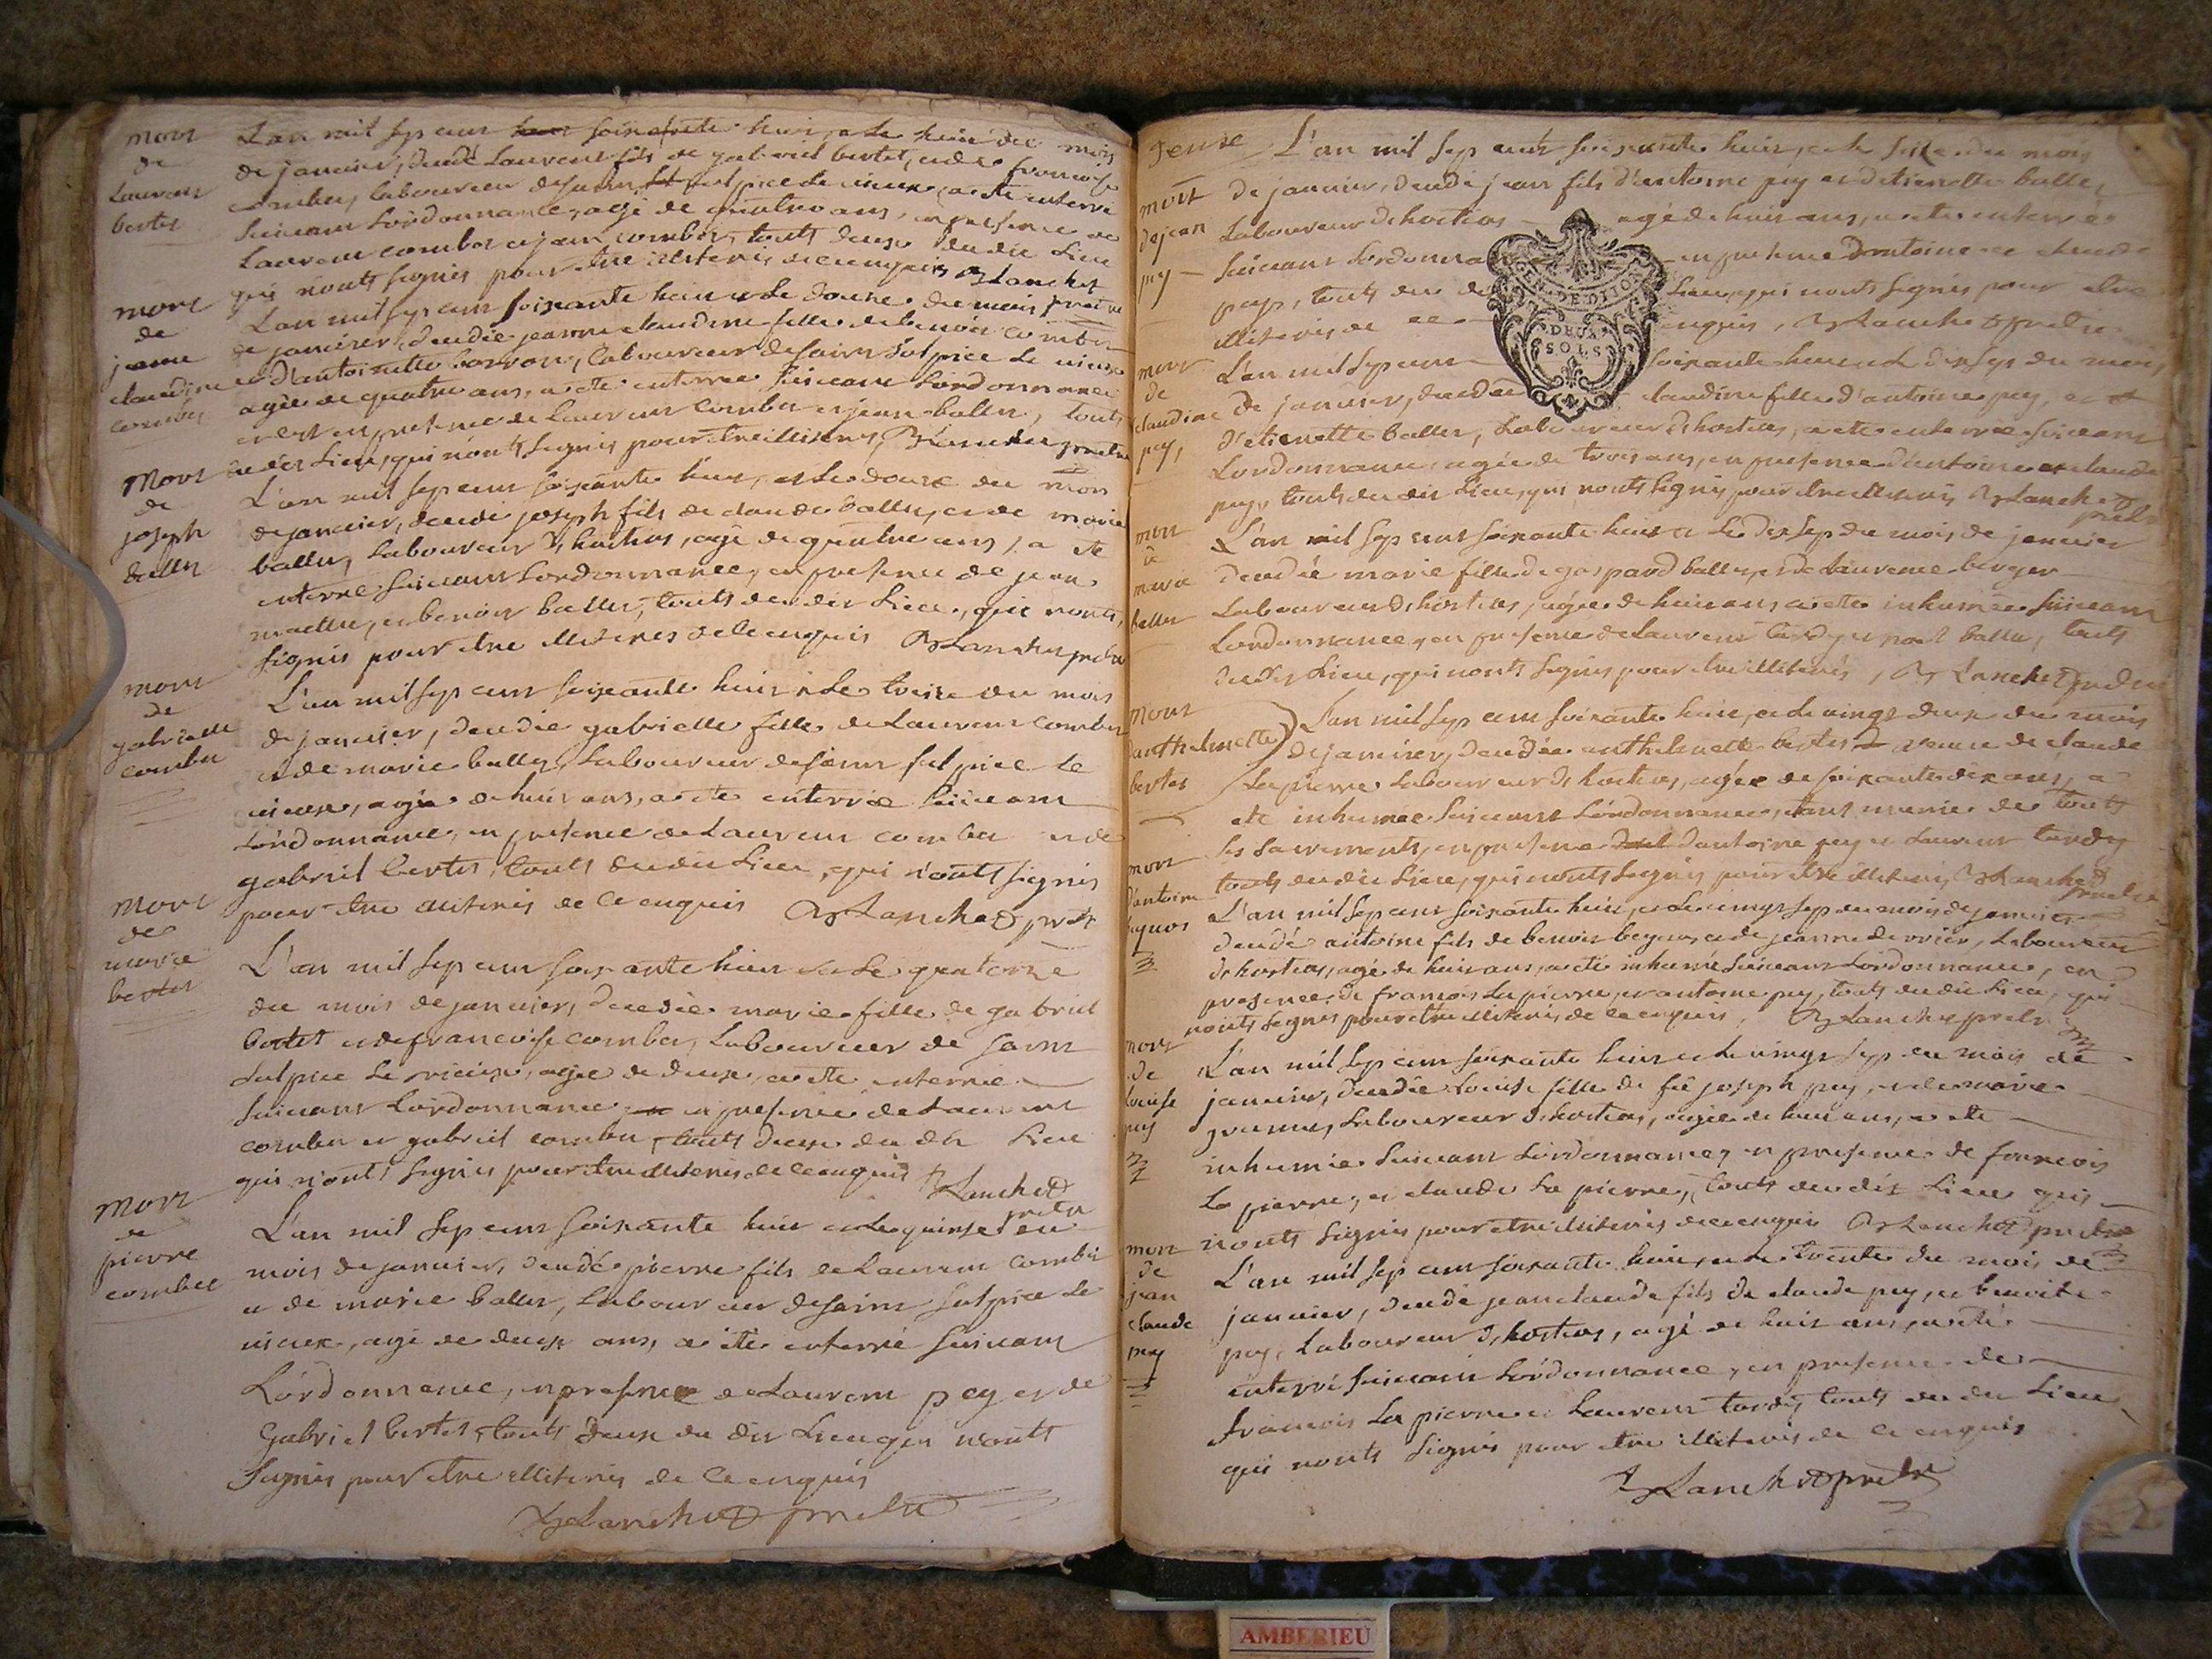 mort
de
Laurent
bertet
L'an mil sept cent soixante huit, et le huit du mois
de janvier, decedé Laurent fils de gabriel bertet, et de francoise
combet, laboureur de saint sulpice le vieux, a été enterré
suivant Lordonnance, agé de quatre ans, en presence de
Laurent combet et jean combet, touts deux du dit Lieu
qui n'onts signés pour etre illiterés de ce enquis Blanchet
pretre
mort
de
jeanne
claudine
combet
L'an mil sept cent soixante huit et le douze du mois
de janvier, decedée jeanne claudine fille de benoit combet
et d'antoinette, laboureur de saint sulpice le vieux
agée de quatre ans, a été enterrée suivant Lordonnance
et en presence de Laurent combet et jean ballet, touts
du dit Lieu, qui n'onts signés pour etre illiterés, Blanchet pretre
Mort
de
joseph
ballet
L'an mil sept cent soixante huit, et le douze du mois
de janvier, decedé joseph fils de claude ballet, et de marie
ballet, laboureur d'hostias, agé de quatre ans, a été
enterré suivant Lordonnance, en presence de jean
et benoit ballet, touts du dit Lieu, qui n'onts
signés pour etre illiterés de ce enquis Blanchet pretre
mort
de
gabrielle
combet
L'an mil sept cent soixante huit et le treize du mois
de janvier, decedée gabrielle fille de Laurent combet
et de marie ballet, Laboureur de saint sulpice le
vieux, agée de huit ans, a été enterrée suivant
Lordonnance, en presence de Laurent combet et de
gabriel bertet, touts du dit Lieu, qui n'onts signés
pour etre illiterés de ce enquis Blanchet pretre
mort
de
marie
bertet
L'an mil sept cent soixante huit et le quatorze
du mois de janvier, decedée marie fille de gabriel
bertet et de francoise combet, Laboureur de saint
sulpice le vieux, agée de deux, a été enterrée
suivant Lordonnance en presence de Laurent
combet et gabriel combet, touts deux du dit Lieu
qui n'onts signés pour etre illiterés de ce enquis Blanchet
pretre
Mort
de
pierre
combet
L'an mil sept cent soixante huit et le quinze du
mois de janvier, decedé pierre fils de Laurent combet
et de marie ballet, Laboureur de saint sulpice le
vieux, agé de deux ans, a été enterré suivant
Lordonnance, en presence de Laurent pey et de
gabriel bertet, touts deux du dit Lieu qui n'onts
signés pour etre illiterés de ce enquis
Blanchet pretre
mort
de jean
pey
L'an mil sept cent soixante huit, et le seize du mois
de janvier, decedé jean fils d'antoine pey et d'etienette ballet,
Laboureur d'hostias agé de huit ans, a été enterré
suivant Lordonnance en presence d'antoine et claude
pey, touts du dit Lieu, qui n'onts signés pour etre
illiterés de ce enquis, Blanchet pretre
GEN. DE DIJON
DEUX
SOLS
mort
de
claudine
pey,
L'an mil sept cent soixante huit et le dix sept du mois
de janvier, decedée claudine fille d'antoine pey, et
d'etienette ballet, Laboureur d'hostias, a été enterrée suivant
Lordonnance, agée de trois ans, en presence d'antoine et claude
pey, touts du dit Lieu, qui n'onts signés pour etre illiterés Blanchet
pretre
mort
de
marie
ballet
L'an mil sept cent soixante huit et le dix sept du mois de janvier
decedée marie fille de gaspard ballet, et de Laurence berger
Laboureur d'hostias, agée de huit ans a été inhumée suivant
Lordonnance, en presence de Laurent tardy et ballet, touts
du dit Lieu, qui n'onts signés pour etre illiterés, Blanchet pretre
Mort
d'anthelmette
bertet
L'an mil sept cent soixante huit, et le vingt deux du mois
de janvier, decedée anthelmette bertet veuve de claude
Lapierre Laboureur d'hostias, agée de soixante dix ans, a
été inhumée suivant Lordonnance, etant munie de touts
les sacrements, en presence d'antoine pey et Laurent tardy
touts du dit Lieu, qui n'onts signés pour etre illiterés, Blanchet
pretre
mort
d'antoine
L'an mil sept cent soixante huit, et le vingt sept du mois de janvier
decedé antoine fils de benoit et de jeanne, Laboureur
d'hostias, agé de huit ans, a été inhumé suivant Lordonnance, en
presence de francois Lapierre, et antoine pey, touts du dit Lieu, qui
n'onts signés pour etre illiterés de ce enquis, Blanchet pretre
mort
de
Louise
pey
L'an mil sept cent soixante huit et le vingt sept du mois de
janvier, decedée Louise fille de feu joseph pey, et de marie
Laboureur d'hostias, agée de huit ans, a été
inhumée suivant Lordonnance, en presence de francois
La pierre, et claude La pierre, touts du dit Lieu qui
n'onts signés pour etre illiterés de ce enquis Blanchet pretre
mort
de
jean
claude
pey
L'an mil sept cent soixante huit, et le trente du mois de
janvier, decedé jean claude fils de claude pey, et benoite
pey, Laboureur d'hostias, agé de huit ans, a été
enterré suivant Lordonnance, en presence de
francois La pierre et Laurent tardy touts du dit Lieu,
qui n'onts signés pour etre illiterés de ce enquis
Blanchet pretre
AMBERIEU